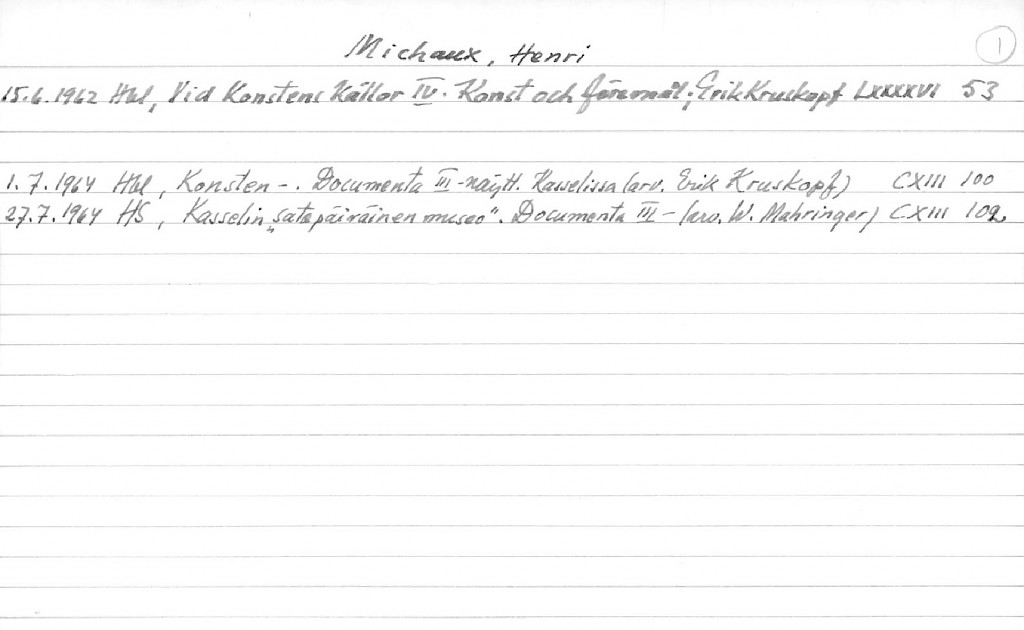 Michaux, Henri 1
15.6.1962 Hbl, Vid Konstens Källor IV. Konst och föremål; Erik Kruskopf LXXXXVI 53
1.7.1964 Hbl, Konsten -. Documenta III-näytt. Kasselissa (arv. Erik Kruskopf) CXIII 100
27.7.1964 HS, Kasselin „satapäiväinen museo". Documenta III - (arv. W. Mahringer) CXIII 102